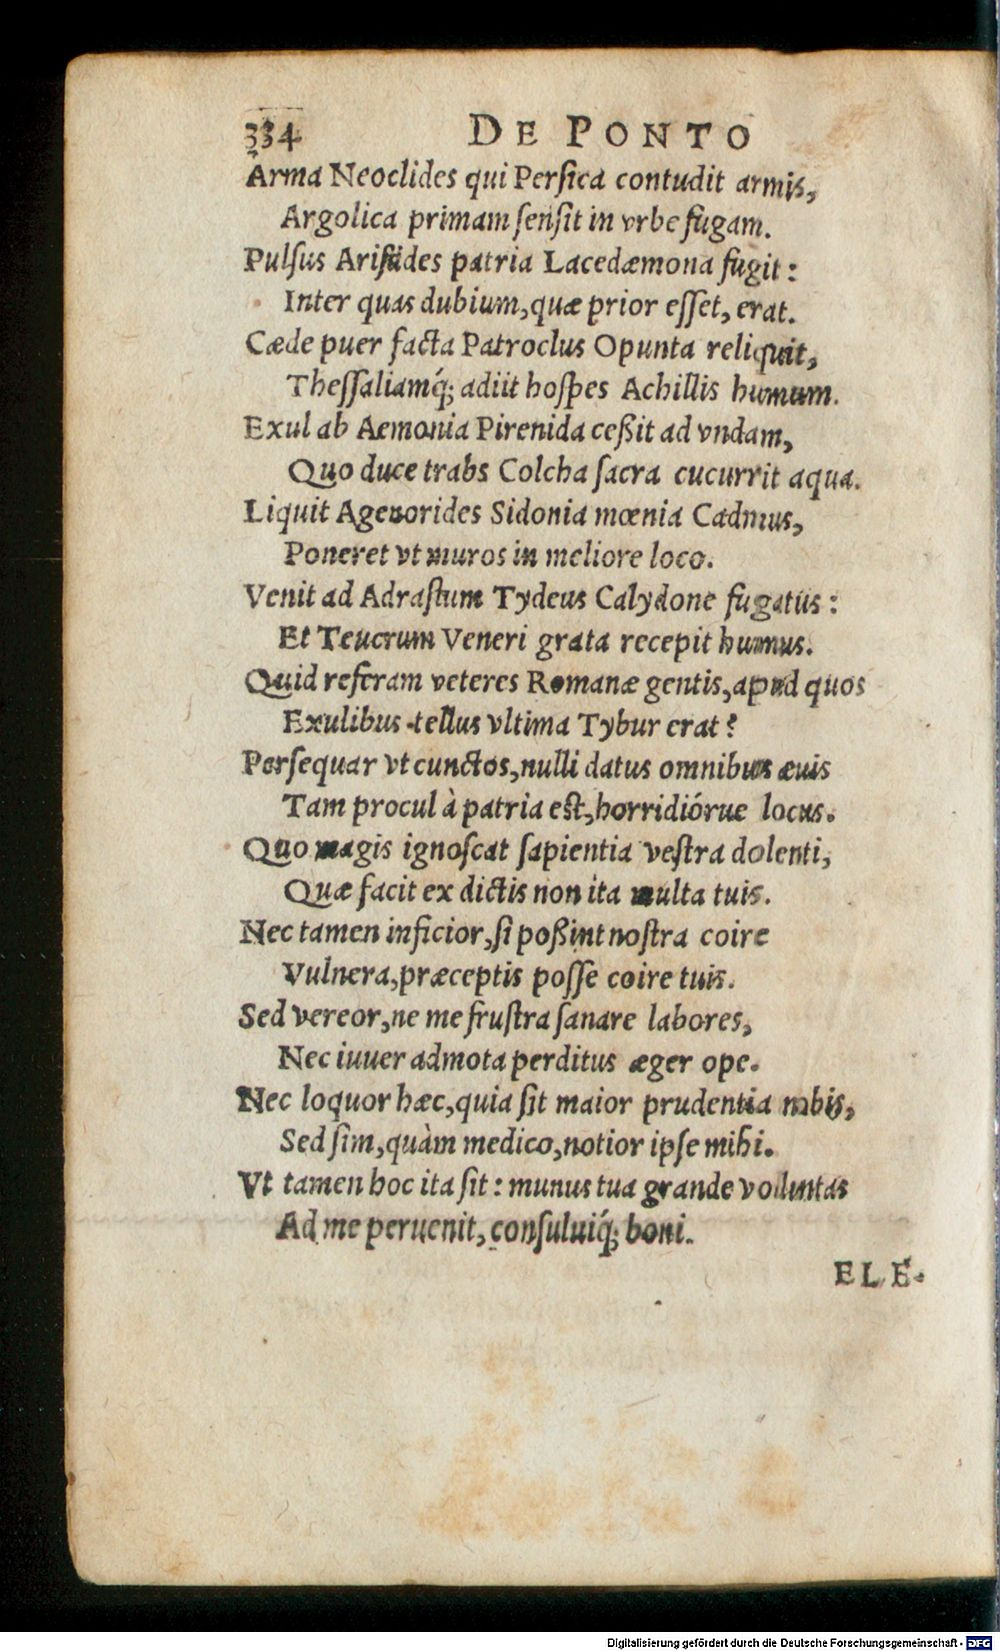 334 DE PONTO
Arma Neoclides qui Perſica contudit armis,
Argolica primam ſenſit in vrbe fugam.
Pulſus Ariſtides patria Lacedæmona fugit:
Inter quas dubium, quæ prior eſſet, erat.
Cæde puer facta Patroclus Opunta reliquit,
Theſſaliamq́; adiit hoſpes Achillis humum.
Exul ab Aemonia Pirenida ceßit ad vndam,
Quo duce trabs Colcha ſacra cucurrit aqua.
Liquit Agenorides Sidonia mœnia Cadmus,
Poneret vt muros in meliore loco.
Venit ad Adraſtum Tydeus Calydone fugatus:
Et Teucrum Veneri grata recepit humus.
Quid referam veteres Romanæ gentis, apud quos
Exulibus tellus vltima Tybur erat?
Perſequar vt cunctos, nulli datus omnibus æuis
Tam procul à patria est, horridiórue locus.
Quo magis ignoſcat ſapientia veſtra dolenti,
Quæ facit ex dictis non ita multa tuis.
Nec tamen inficior, ſi poßint noſtra coire
Vulnera, præceptis poſſe coire tuis.
Sed vereor, ne me fruſtra ſanare labores,
Nec iuuer admota perditus æger ope.
Nec loquor hæc, quia ſit maior prudentia nobis,
Sed ſim, quàm medico, notior ipſe mihi.
Vt tamen hoc ita ſit: munus tua grande voluntas
Ad me peruenit, conſuluiq́; boni.
ELE-
Digitalisierung gefördert durch die Deutsche Forschungsgemeinschaft - DFG